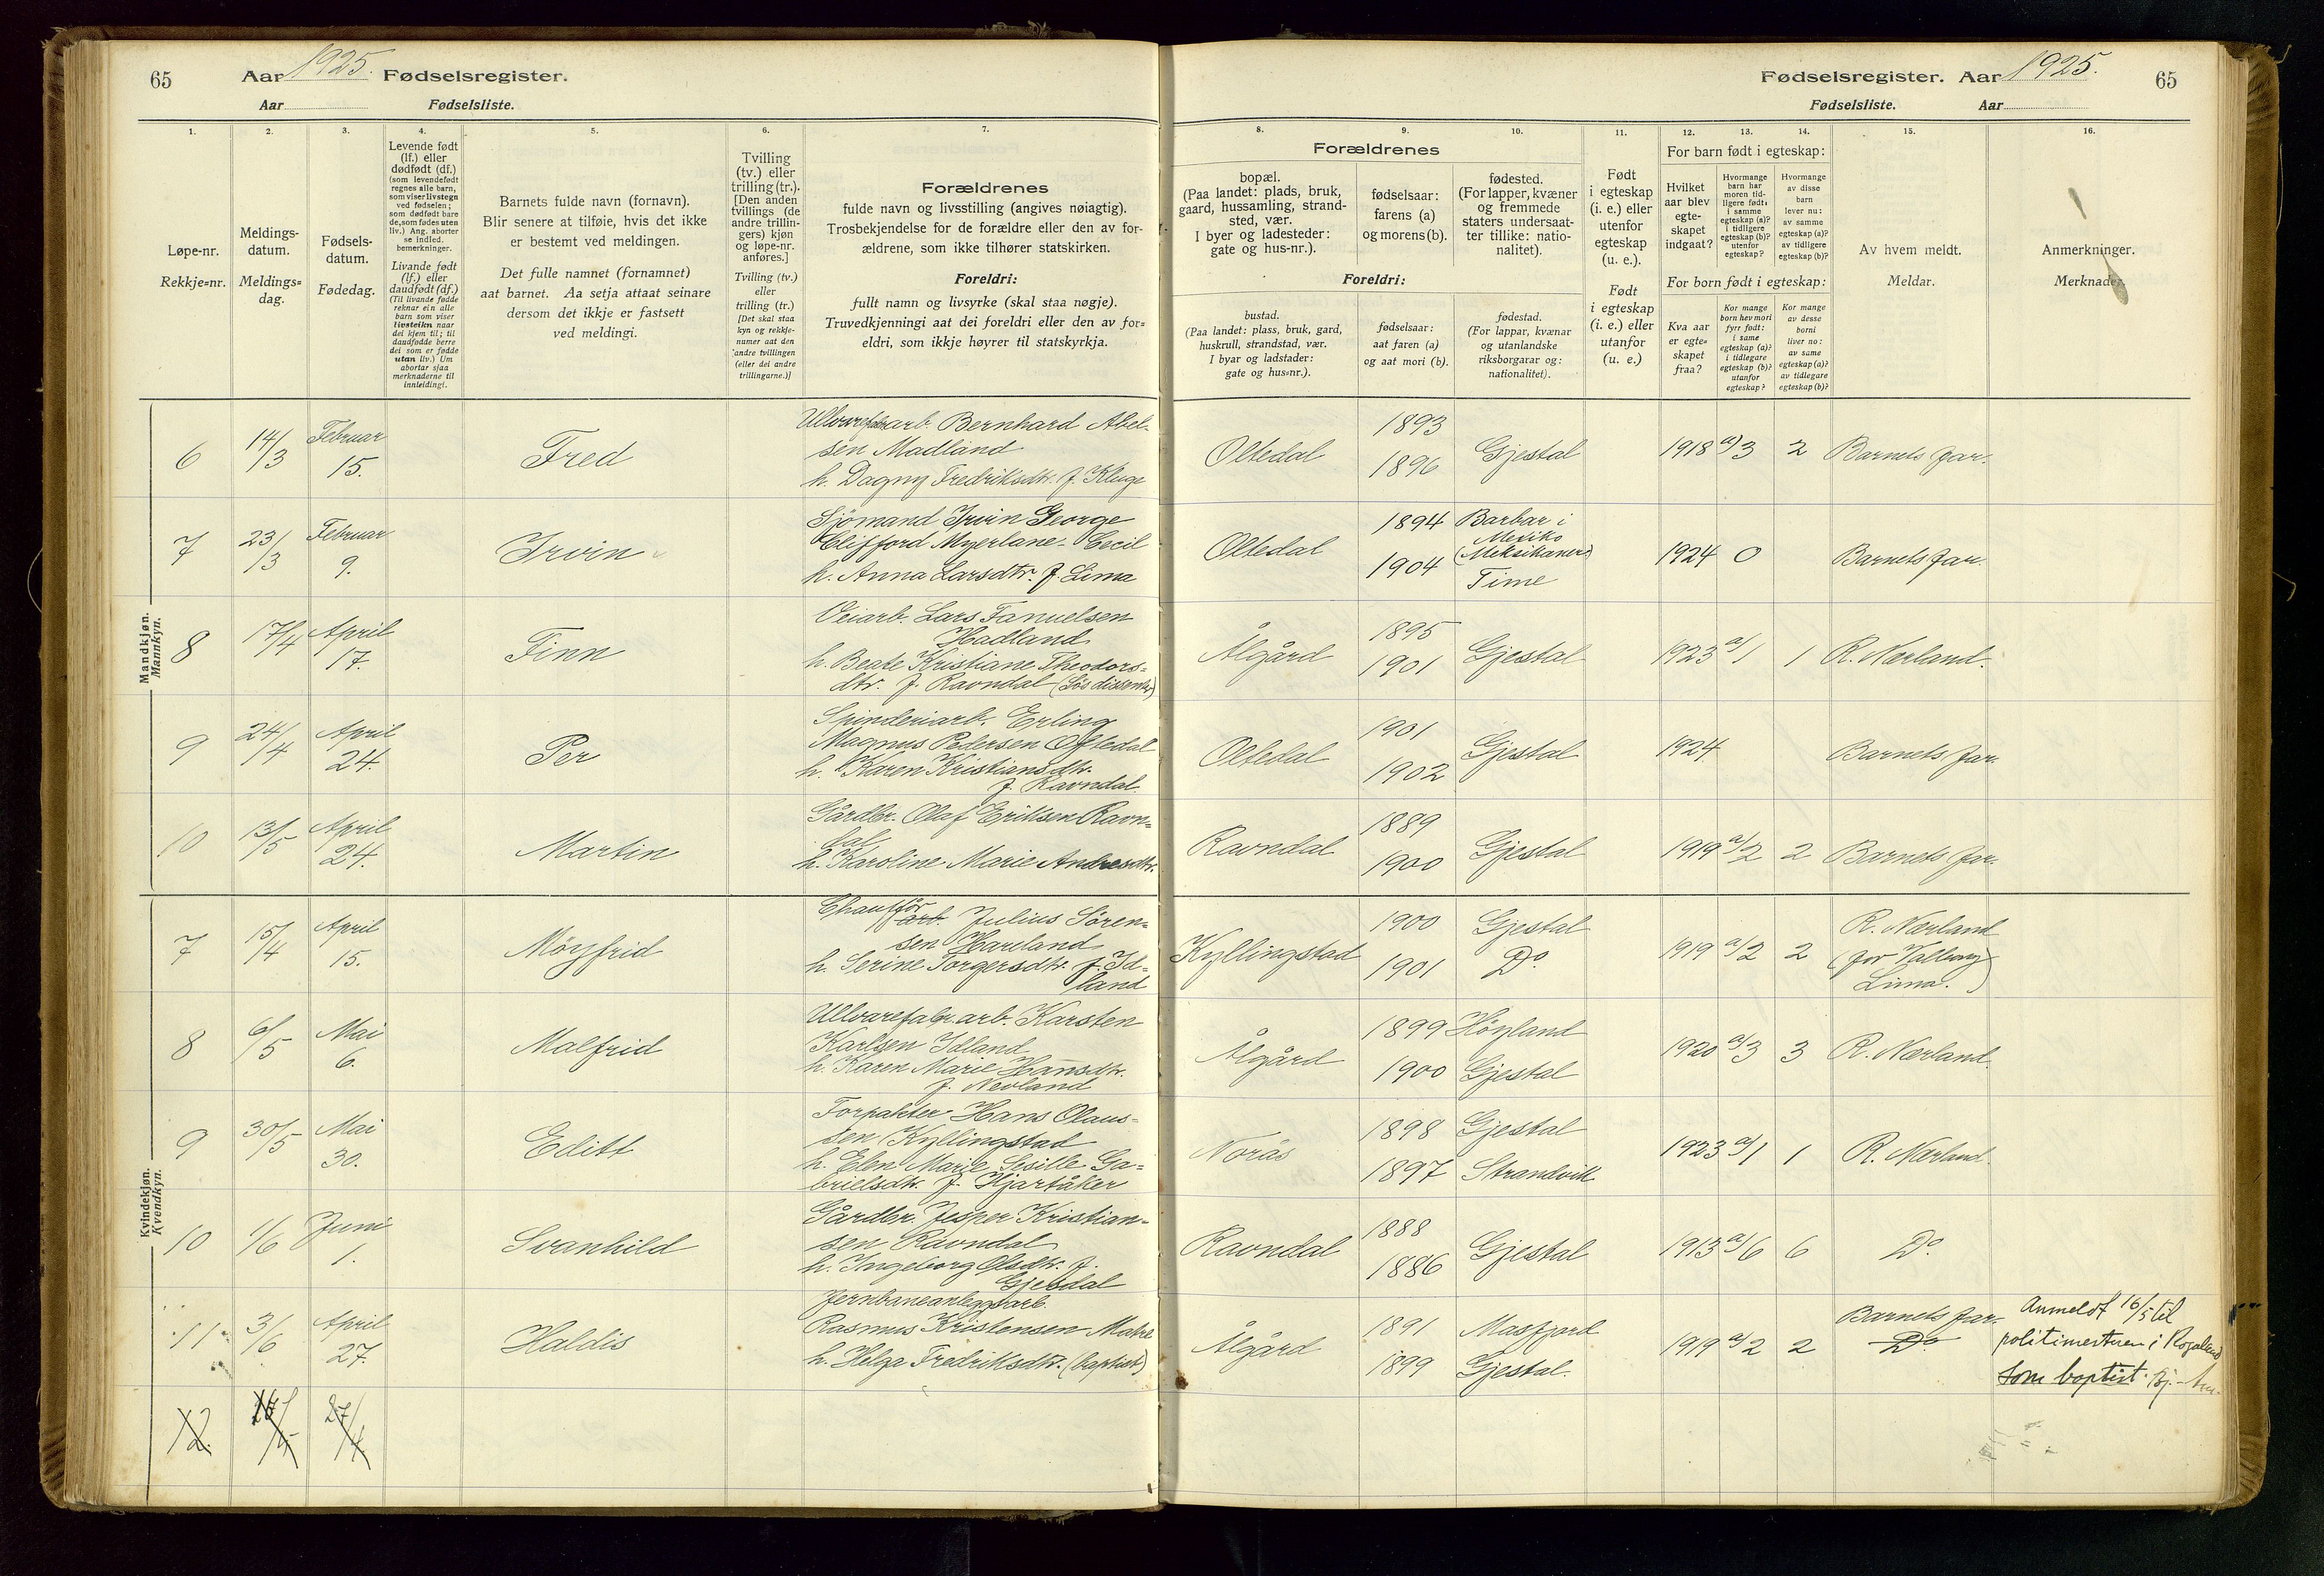 65 Aar 1925. Fødselsregister.
Aar Fødselsliste.
Fødselsregister. Aar 1925. 65
Fødselsliste. Aar
1. 2. 3. 4. 5. 6. 7. 8. 9. 10. 11. 12. 13. 14. 15. 16.
Løpe-nr.
Rekkje=nr.
Meldings-
datum.
Meldings=
dag.
Fødsels-
datum.
Fødedag.
Levende født
(lf.) eller
dødfødt (df.)
(som levendefødt
regnes alle barn,
som viser livstegn
ved fødselen;
som dødfødt bare
de, som fødes uten
liv.) Ang. aborter
se indled.
bemerkninger.
Livande født
(lf.) eller
daudfødt (df.)
(Til livande fødde
reknar ein alle
barn som viser
livsteikn naar
dei kjem til; til
daudfødde berre
dei som er fødde
utan liv.) Um
abortar sjaa
merknaderne til
innleidingi.
Barnets fulde navn (fornavn).
Blir senere at tilføie, hvis det ikke
er bestemt ved meldingen.
Det fulle namnet (fornamnet)
aat barnet. Aa setja attaat seinare
dersom det ikkje er fastsett
ved meldingi.
Tvilling
(tv.) eller
trilling (tr.).
[Den anden
tvillings (de
andre trillin-
gers) kjøn
og løpe-nr.
anføres.]
Tvilling (tv.)
eller
trilling (tr.)
[Det skal staa
kyn og rekkje-
numer aat den
andre tvillingen
(eller dei andre
trillingarne.)]
Forældrenes
fulde navn og livsstilling (angives nøiagtig).
Trosbekjendelse for de forældre eller den av for-
ældrene, som ikke tilhører statskirken.
Foreldri:
fullt namn og livsyrke (skal staa nøgje).
Truvedkjenningi aat dei foreldri eller den av for=
eldri, som ikkje høyrer til statskyrkja.
Forældrenes
bopæl.
(Paa landet: plads, bruk,
gaard, hussamling, strand-
sted, vær.
I byer og ladesteder:
gate og hus-nr.).
fødselsaar:
farens (a)
og morens (b).
fødested.
(For lapper, kvæner
og fremmede
staters undersaat-
ter tillike: natio-
nalitet).
Foreldri:
bustad.
(Paa landet: plass, bruk, gard,
huskrull, strandstad, vær.
I byar og ladstader:
gate og hus=nr.).
fødselsaar:
aat faren (a)
og aat mori (b).
fødestad.
(For lappar, kvænar
og utanlandske
riksborgarar og:
nationalitet).
Født
i egteskap
(i. e.) eller
utenfor
egteskap
(u. e.).
Født
i egteskap
(i. e.) eller
utanfor
(u. e.)
For barn født i egteskap:
Hvilket
aar blev
egte-
skapet
indgaat?
Hvormange
barn har
moren tid-
ligere født,
i samme
egteskap (a)?
i tidligere
egteskap (b)?
utenfor
egteskap?
Hvormange
av disse
barn
lever nu:
av samme
egteskap (a)?
av tidligere
egteskap (b)?
For born født i egteskap:
Kva aar
er egte=
skapet
fraa?
Kor mange
born hev mori
fyrr født:
i same
egteskap (a)?
i tidlegare
egteskap (b)?
utanfor
egteskap?
Kor mange
av desse
borni
liver no:
av same
egteskap (a)?
av tidlegare
egteskap (b)?
Av hvem meldt.
Meldar.
Anmerkninger.
Merknader.
Mandkjøn.
Mannkyn.
6 14/3 Februar 15. Fred
Ullvarefabr.arb. Bernhard Abel-
sen Madland
h. Dagny Fredriksdtr. f. Kluge
Oltedal 1893 1896 Gjestal 1918 a/3 2 Barnets far.
7 23/3 Februar 9. Irvin
Sjömand Irvin George
Clifford Myerlane-Cecil
h. Anna Larsdtr. f. Lima
Oltedal 1894 Barbar i
Mexiko
(Meksikaner)
1904 Time 1924 0 Barnets far.
8 17/4 April 17. Finn
Veiarb. Lars Fanuelsen
Hadland
h. Beate Kristiane Theodors-
dtr. f. Ravndal (Løs dissenter)
Ålgård 1895 1901 Gjestal 1923 a/1 1 R. Nærland.
9 24/4 April 24. Per
Spinderiarb. Erling
Magnus Pedersen Oftedal
h. Karen Kristiansdtr.
f. Ravndal.
Oltedal 1901 1902 Gjestal 1924 Barnets far.
10 13/5 April 24. Martin
Gårdbr. Olaf Eriksen Ravn=
dal
h. Karoline Marie Andresdtr.
Ravndal 1889 1900 Gjestal 1919 a/2 2 Barnets far.
Kvindekjøn.
Kvendkyn.
7 15/4 April 15. Möyfrid
Chauffør arb. Julius Sören=
sen Haveland
h. Serine Torgersdtr. f. Id=
land
Kyllingstad 1900 Gjestal 1901 Do. 1919 a/2 2 R. Nærland
(for Valborg
Lima.)
8 6/5 Mai 6. Malfrid
Ullvarefabr.arb. Karsten
Karlsen Idland
h. Karen Marie Hansdtr.
f. Nevland
Ålgård 1899 Höyland 1900 Gjestal 1920 a/3 3 R. Nærland.
9 30/5 Mai 30. Editt
Forpakter Hans Olaus-
sen Kyllingstad
h. Elen Marie Sesille Ga-
brielsdtr. f. Hjartåker
Norås 1898 Gjestal 1897 Strandvik 1923 a/1 1 R. Nærland.
10 1/6 Juni 1. Svanhild
Gårdbr. Jesper Kristian=
sen Ravndal
h. Ingeborg Olsdtr. f.
Gjesdal
Ravndal 1888 1886 Gjestal 1913 a/6 6 Do.
11 3/6 April 27. Haldis
Jernbaneanleggsarb.
Rasmus Kristensen Matre
h. Helga Fredriksdtr. (baptist)
Ålgård 1891 Masfjord 1899 Gjestal. 1919 a/2 2 Barnets far.
Do.
Anmeldt 16/5 til
politimesteren i Rogaland
som baptist.
12. 27/4